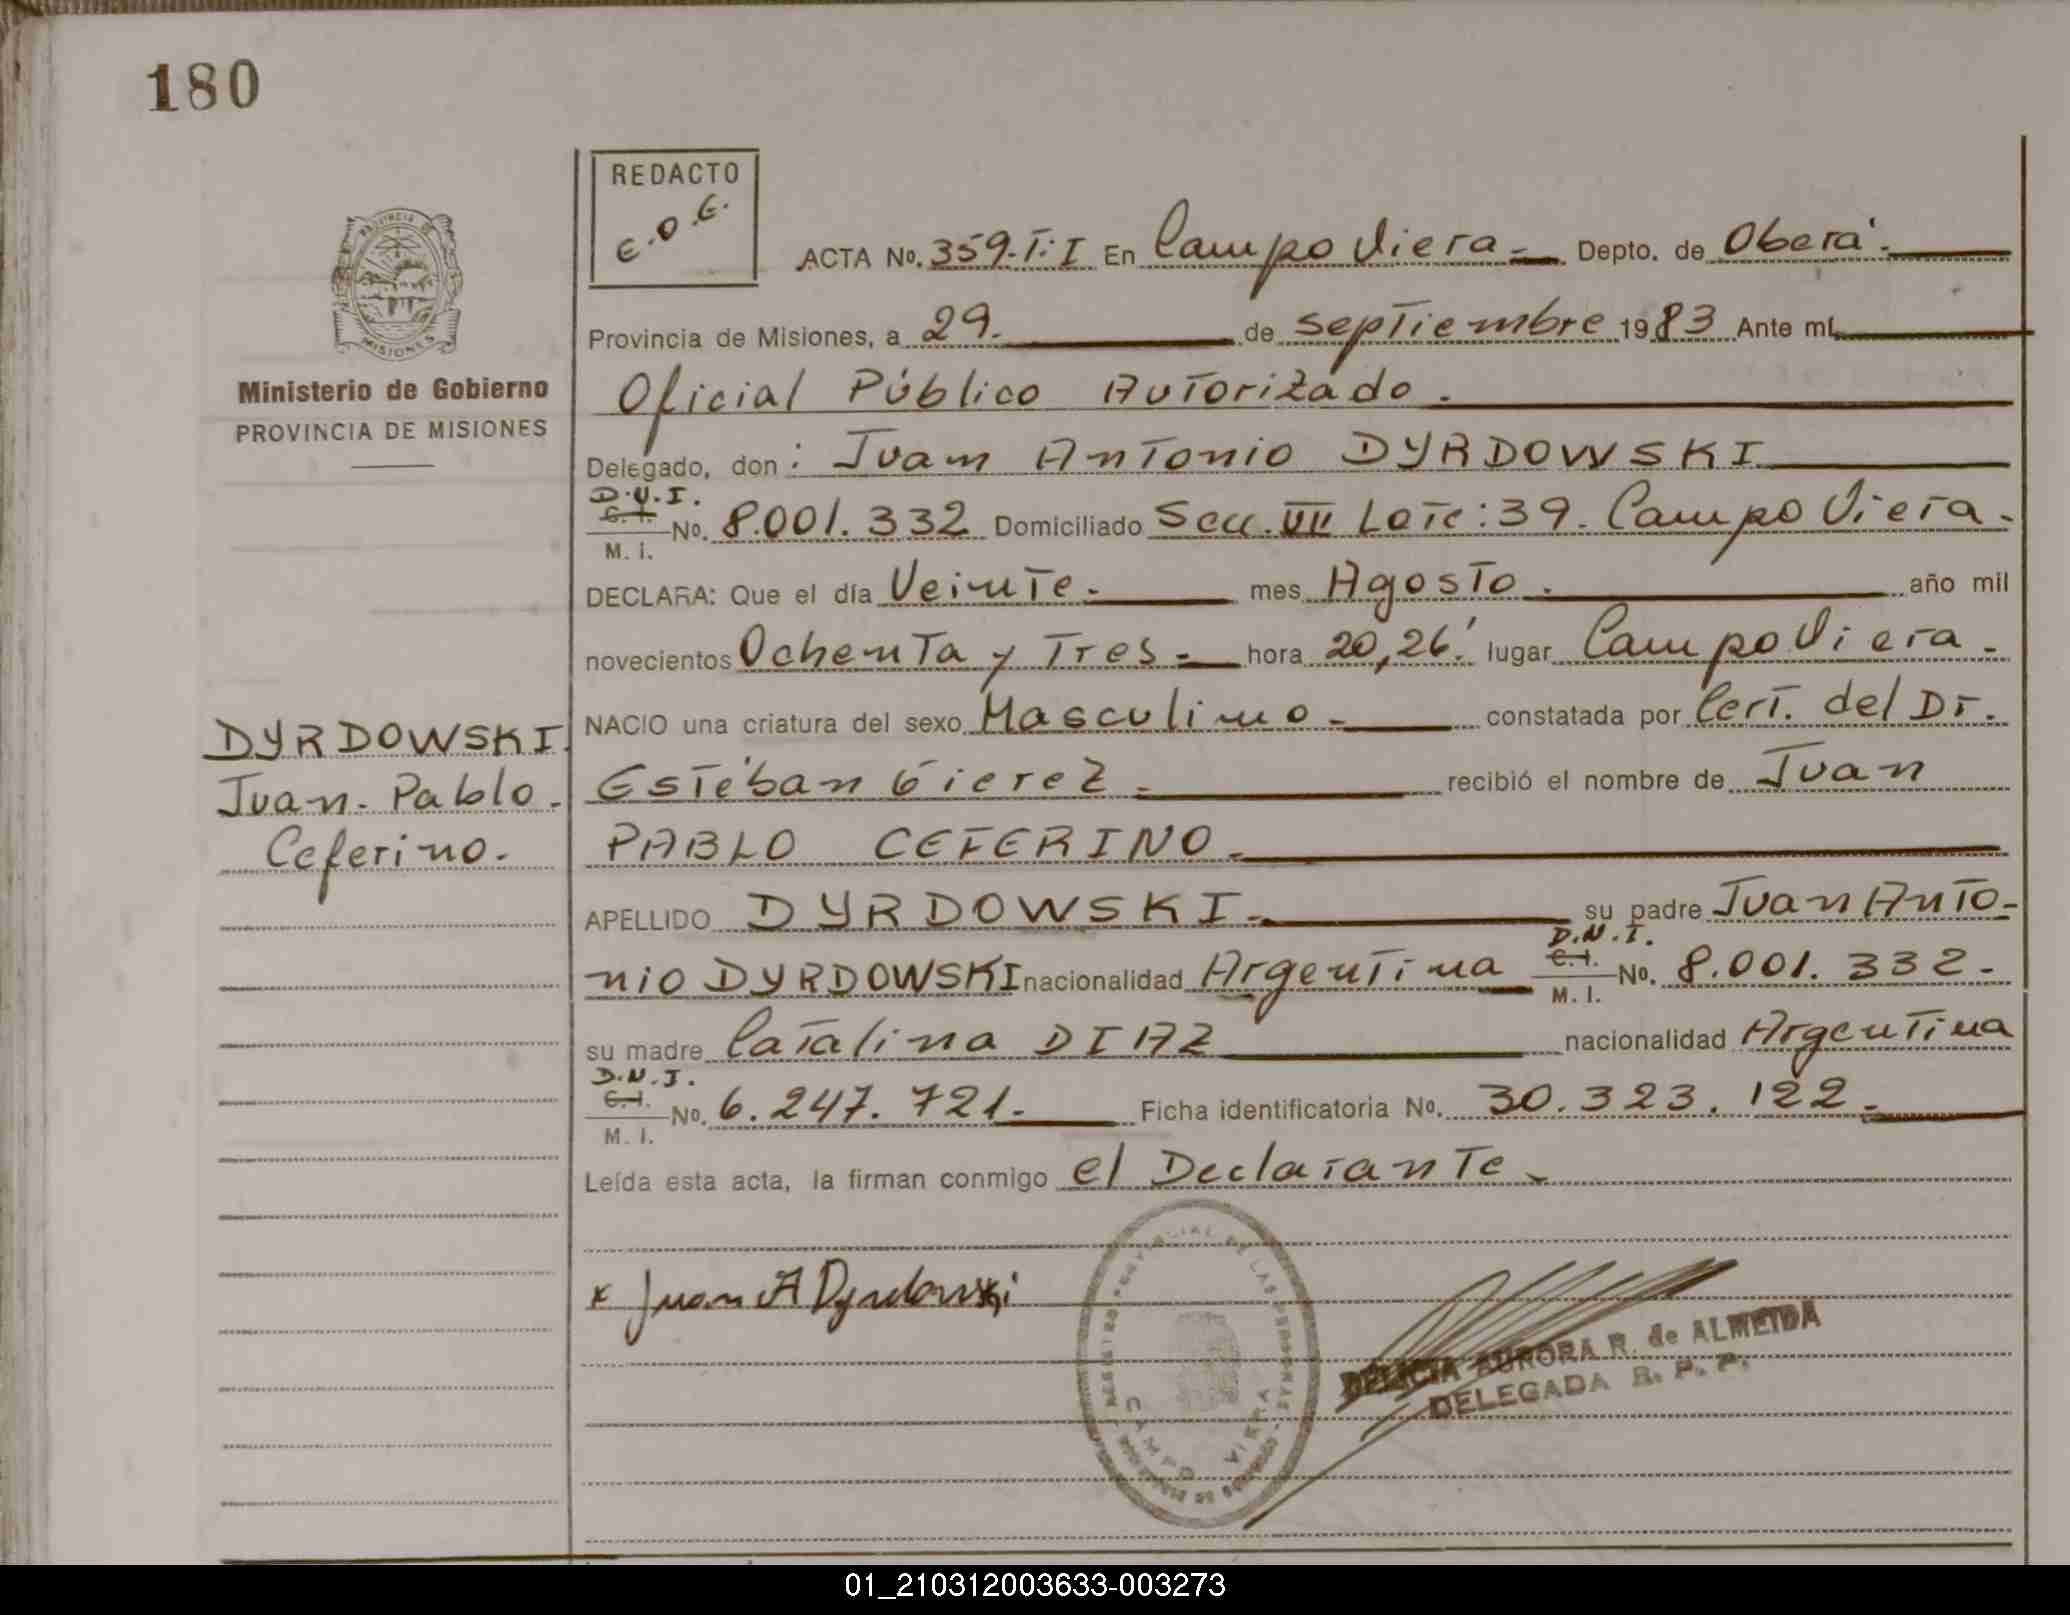 180
REDACTO
E.O.G.
ACTA No. 359.T:I En Campo Viera.- Depto. de Oberá.-
Provincia de Misiones, a 29. de septiembre 1983 Ante mí
Oficial Público Autorizado.
Delegado, don: Juan Antonio DYRDOWSKI
D.N.I.
C.I. No. 8.001.332 Domiciliado Secc. VII Lote:39. Campo Viera.
M. I.
DECLARA: Que el día Veinte.- mes Agosto. año mil
novecientos Ochenta y Tres.- hora 20,26' lugar Campo Viera.
NACIO una criatura del sexo Masculino.- constatada por Cert. del Dr.
Estéban Gierez.- recibió el nombre de Juan
PABLO CEFERINO.-
APELLIDO DYRDOWSKI.- su padre Juan Anto-
nio DYRDOWSKI nacionalidad Argentina D.N.I. C.I. M. I. No. 8.001.332.-
su madre Catalina DIAZ nacionalidad Argentina
D.N.I.
C.I. No. 6.247.721.- Ficha identificatoria No. 30.323.122.-
M. I.
Leída esta acta, la firman conmigo el Declarante.
x Juan A Dyrdowski
REGISTRO PROVINCIAL DE LAS PERSONAS
CAMPO VIERA
DELICIA AURORA R. de ALMEIDA
DELEGADA R. P. P.
PROVINCIA DE
MISIONES
Ministerio de Gobierno
PROVINCIA DE MISIONES
DYRDOWSKI.
Juan. Pablo.
Ceferino.
01_210312003633-003273